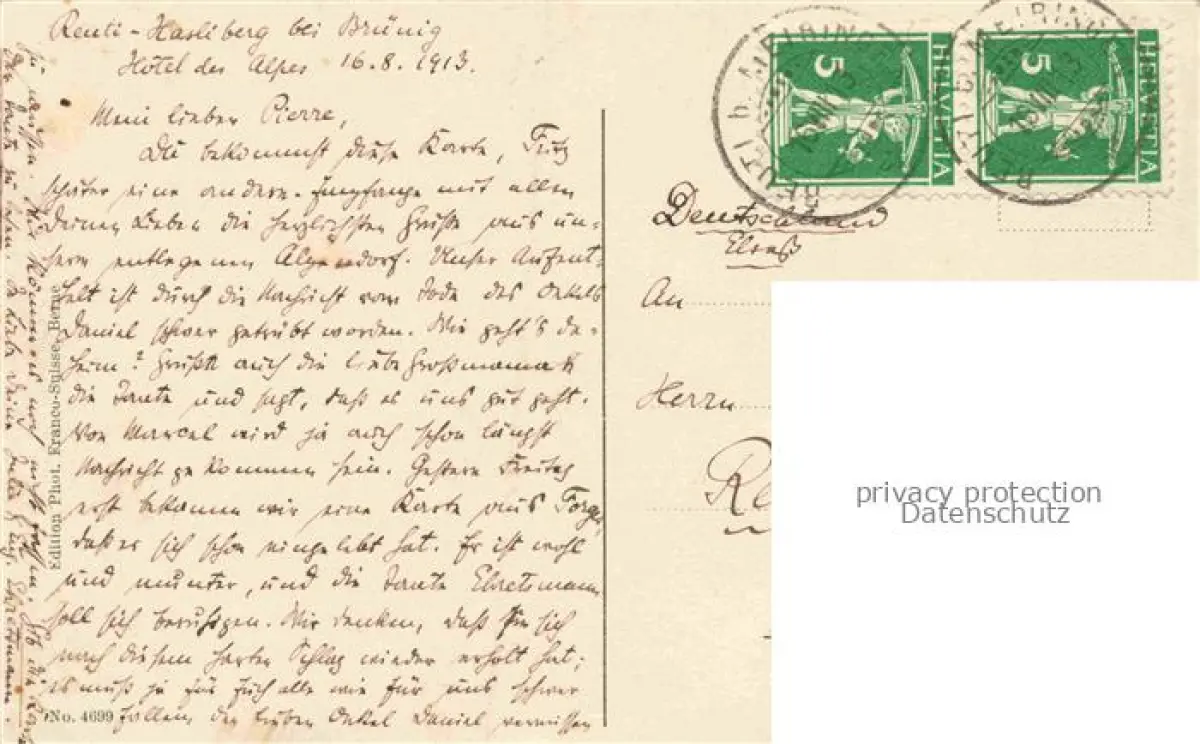 Reuti-Hasliberg bei Brünig
Hotel des Alpes 16.8.1913.
Mein lieber Pierre,
Du bekommst diese Karte, Fritz
später eine andere. Empfange mit allen
Deinen Lieben die herzlichsten Grüße aus un-
serm entlegenen Alpendorf. Unser Aufent-
halt ist durch die Nachricht vom Tode des Onkels
Daniel schwer getrübt worden. Wie geht's da-
heim? Grüße auch die liebe Großmama &
die Tante und sagt, daß es uns gut geht.
Von Marcel wird ja auch schon längst
Nachricht gekommen sein. Gestern Freitag
erst bekamen wir eine Karte aus
daß er sich schon eingelebt hat. Er ist wohl
und munter, und die Tante Ehretsmann
soll sich beruhigen. Wir denken, daß sie sich
nach diesem harten Schlag wieder erholt hat;
es muß ja für Euch alle wie für uns schwer
fallen, den lieben Onkel Daniel vermissen
zu müssen. Wir können es noch nicht fassen. Gib die Karte
der Tante zu lesen. In Liebe Deine
Ehretsmann.
Edition Phot. Franco-Suisse, Berne
No. 4699
HELVETIA 5
HELVETIA 5
REUTI b. MEIRINGEN
REUTI b. MEIRINGEN
Deutschland
Elsaß
An
Herrn
privacy protection
Datenschutz